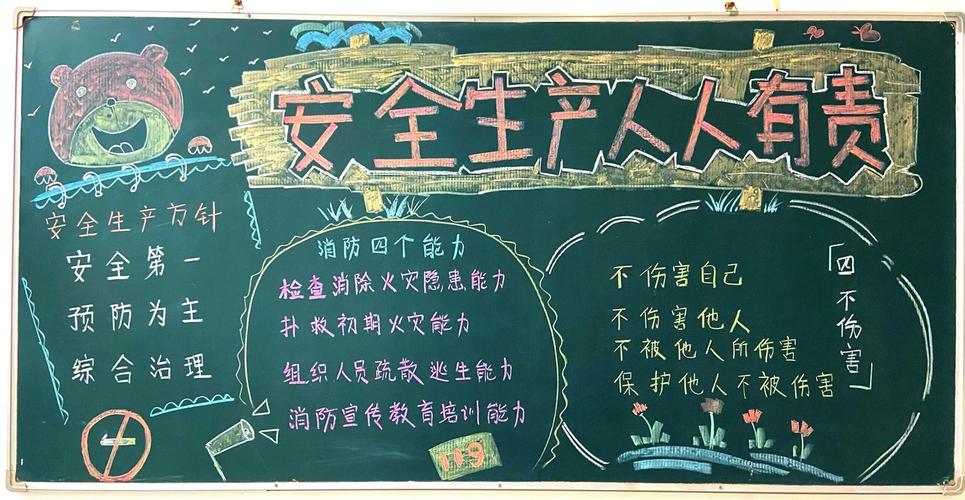 安全生产人人有责
安全生产方针
安全第一
预防为主
综合治理
消防四个能力
检查消除火灾隐患能力
扑救初期火灾能力
组织人员疏散逃生能力
消防宣传教育培训能力
119
「四不伤害」
不伤害自己
不伤害他人
不被他人所伤害
保护他人不被伤害